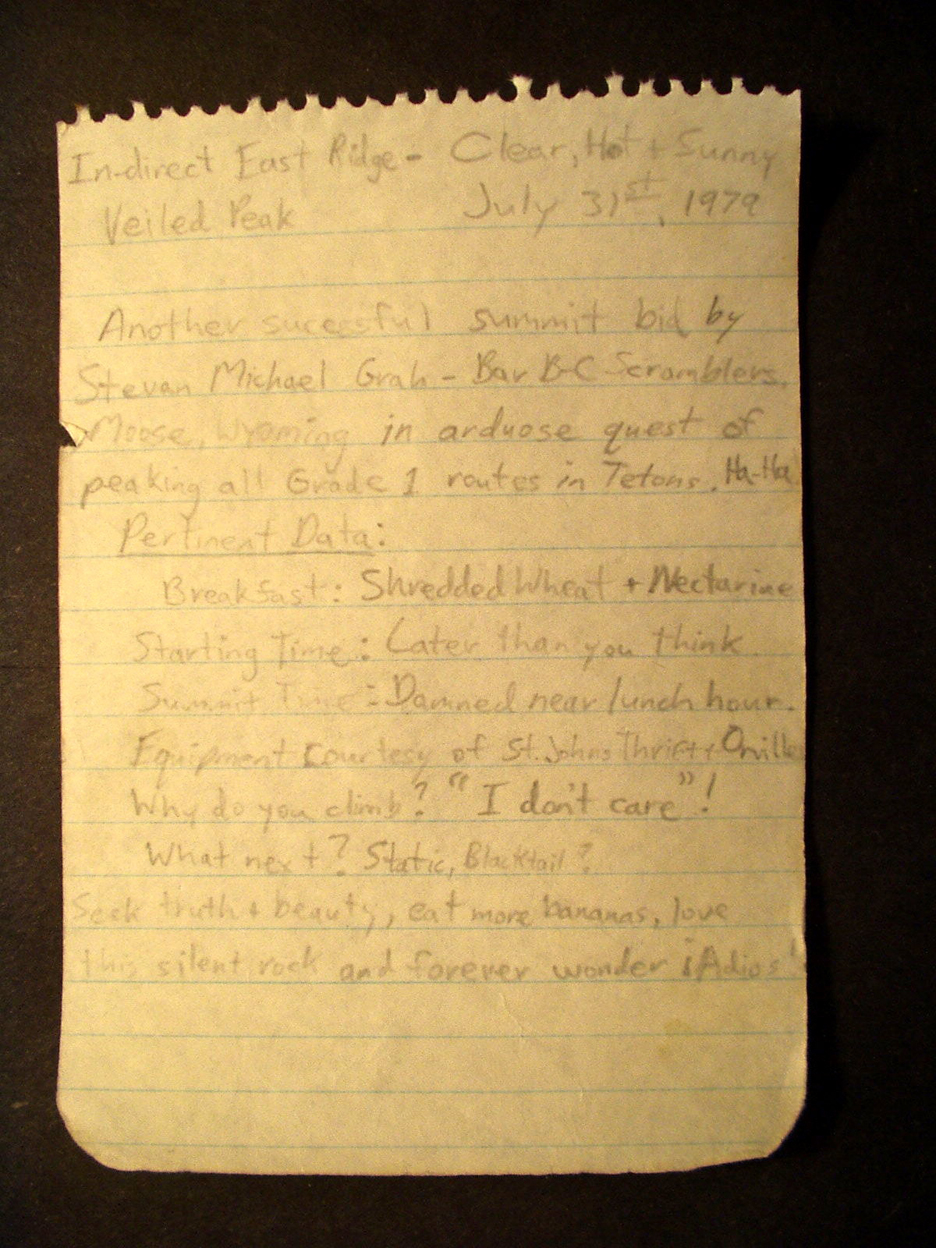 In-direct East Ridge - Clear, Hot + Sunny
Veiled Peak July 31st, 1979
Another sucessful summit bid by
Stevan Michael Grah - Bar B-C Scramblers,
Moose, Wyoming in arduose quest of
peaking all Grade 1 routes in Tetons. Ha-Ha
Pertinent Data:
Breakfast: Shredded Wheat + Nectarine
Starting Time: Later than you think.
Summit Time: Damned near lunch hour.
Equipment courtesy of St. Johns Thrift + Orville
Why do you climb? "I don't care"!
What next? Static, Blacktail?
Seek truth + beauty, eat more bananas, love
this silent rock and forever wonder ¡Adios!